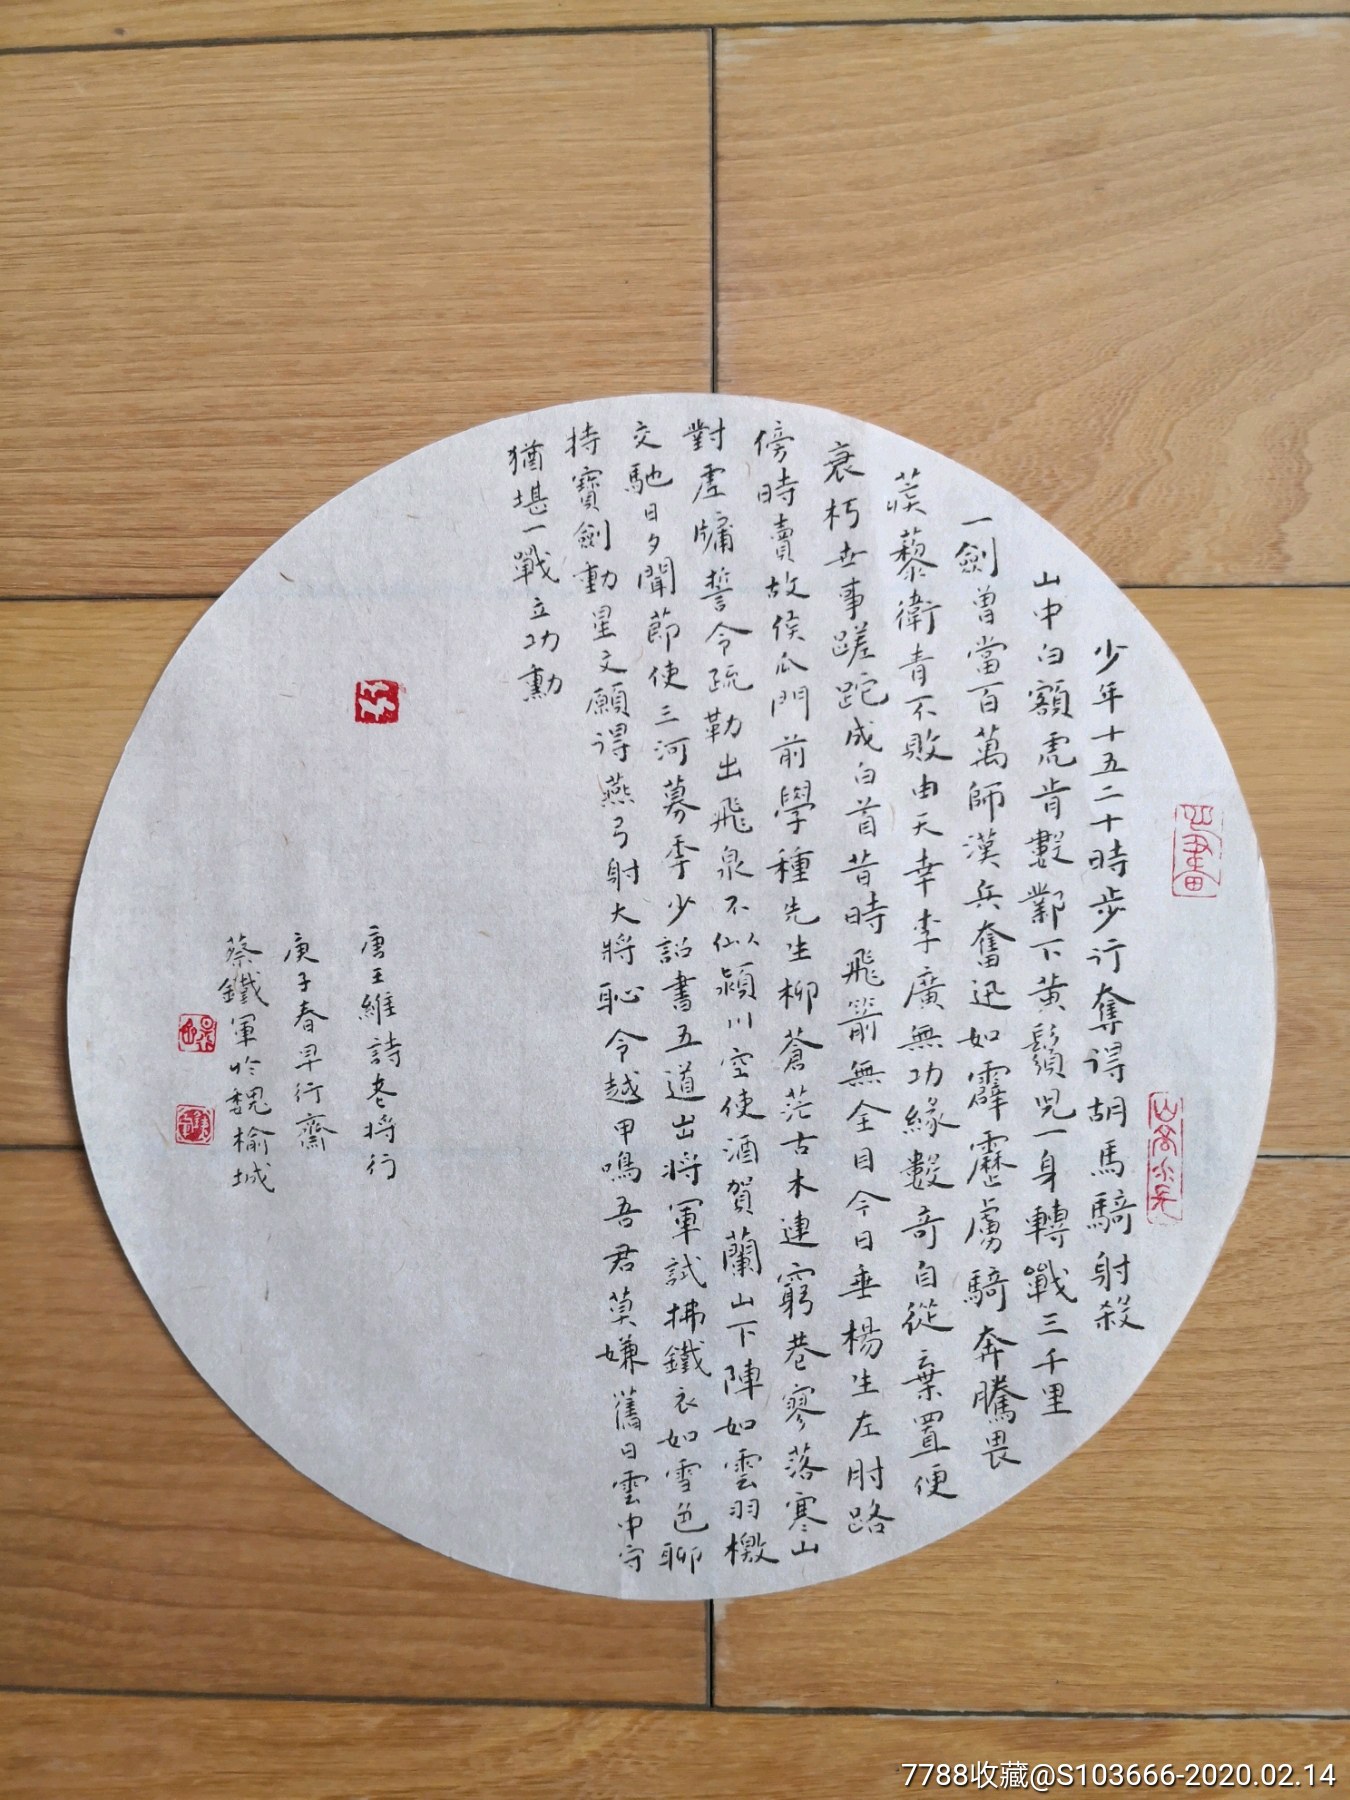 少年十五二十時步行奪得胡馬騎射殺
山中白額虎肯數鄴下黃鬚兒一身轉戰三千里
一劍曾當百萬師漢兵奮迅如霹靂虜騎奔騰畏
蒺藜衛青不敗由天幸李廣無功緣數奇自從棄置便
衰朽世事蹉跎成白首昔時飛箭無全目今日垂楊生左肘路
傍時賣故侯瓜門前學種先生柳蒼茫古木連窮巷寥落寒山
對虛牖誓令疏勒出飛泉不似潁川空使酒賀蘭山下陣如雲羽檄
交馳日夕聞節使三河募季少詔書五道出將軍試拂鐵衣如雪色聊
持寶劍動星文願得燕弓射大將恥令越甲鳴吾君莫嫌舊日雲中守
猶堪一戰立功勳
唐王維詩老將行
庚子春早行齋
蔡鐵軍吟魏榆城
7788收藏@S103666-2020.02.14